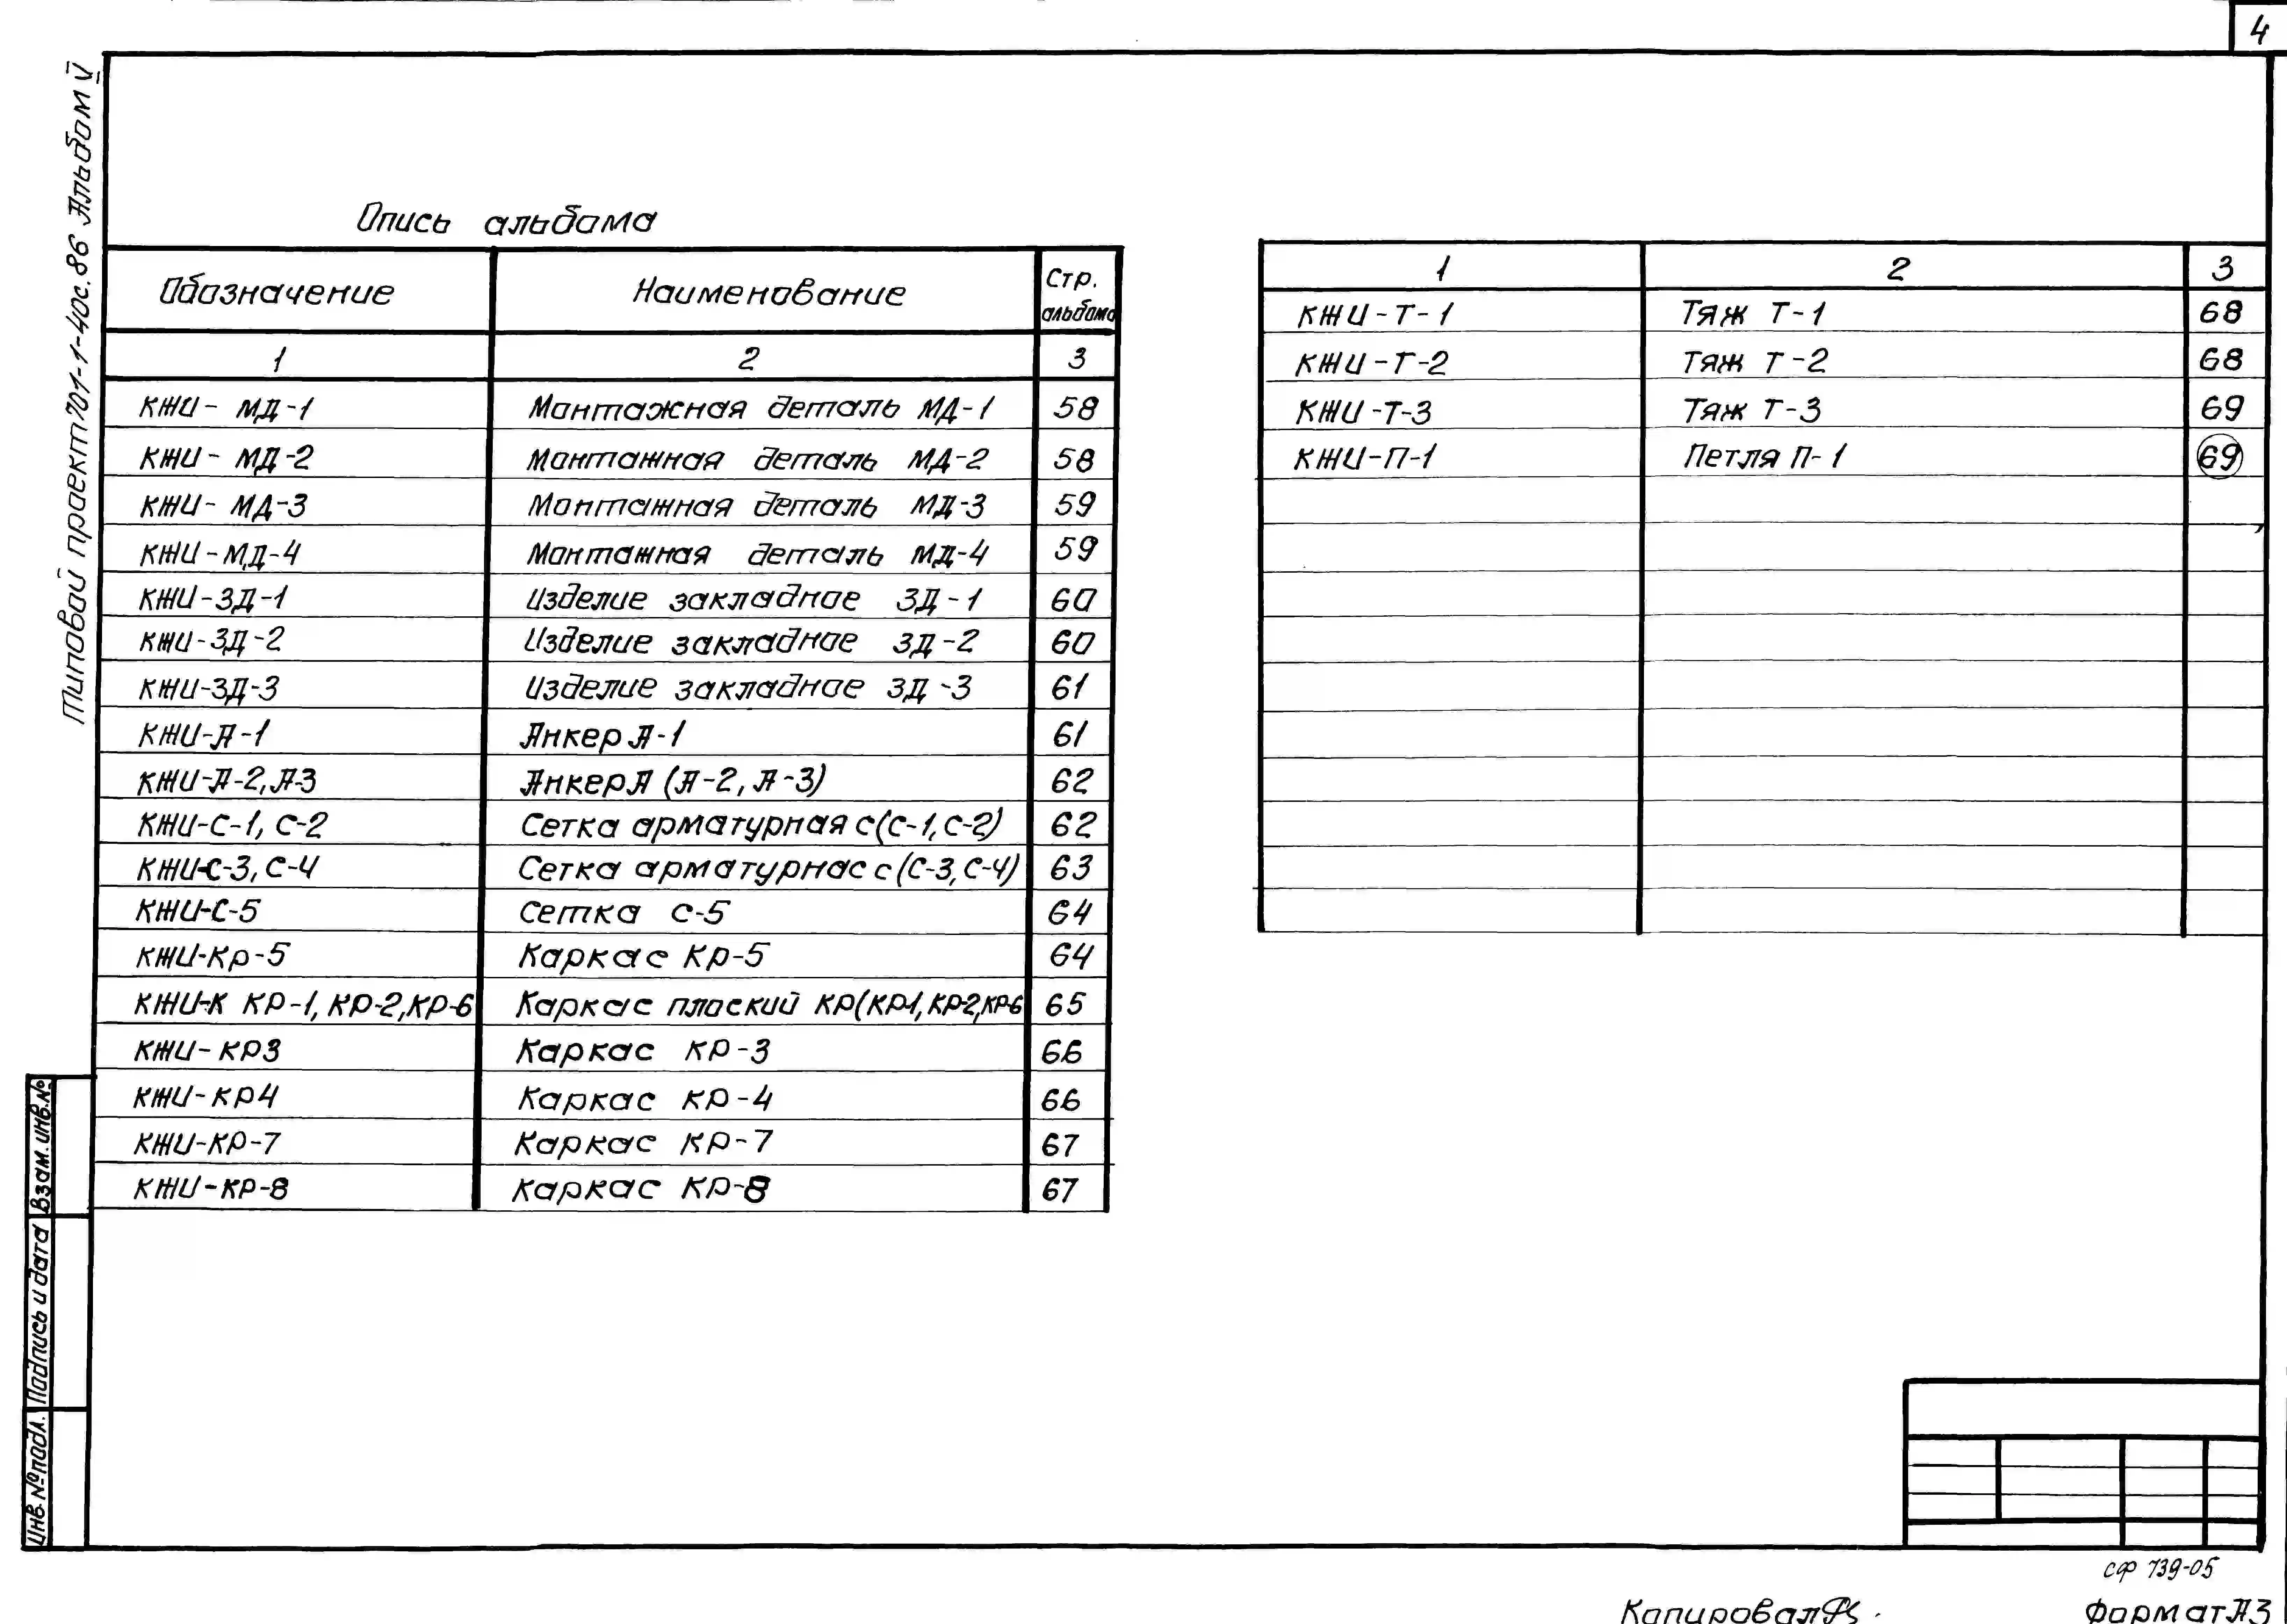 4
Типовой проект 701-1-40с.86 Альбом V
Опись альбома
Обозначение Наименование Стр. альбома
1 2 3
КЖИ- МД-1 Монтажная деталь МД-1 58
КЖИ- МД-2 Монтажная деталь МД-2 58
КЖИ- МД-3 Монтажная деталь МД-3 59
КЖИ-МД-4 Монтажная деталь МД-4 59
КЖИ-ЗД-1 Изделие закладное ЗД-1 60
КЖИ-ЗД-2 Изделие закладное ЗД-2 60
КЖИ-ЗД-3 Изделие закладное ЗД-3 61
КЖИ-А-1 Анкер А-1 61
КЖИ-А-2, А-3 Анкер А (А-2, А-3) 62
КЖИ-С-1, С-2 Сетка арматурная С(С-1, С-2) 62
КЖИ-С-3, С-4 Сетка арматурнас с (С-3, С-4) 63
КЖИ-С-5 Сетка С-5 64
КЖИ-Кр-5 Каркас Кр-5 64
КЖИ-К КР-1, КР-2, КР-6 Каркас плоский КР(КР-1, КР-2, КР-6 65
КЖИ-КР3 Каркас КР-3 66
КЖИ-КР4 Каркас КР-4 66
КЖИ-КР-7 Каркас КР-7 67
КЖИ-КР-8 Каркас КР-8 67
1 2 3
КЖИ-Т-1 Тяж Т-1 68
КЖИ-Т-2 Тяж Т-2 68
КЖИ-Т-3 Тяж Т-3 69
КЖИ-П-1 Петля П-1 69
Взам. инв.№
Подпись и дата
Инв.№подл.
СФ 739-05
Копировал
Формат А3